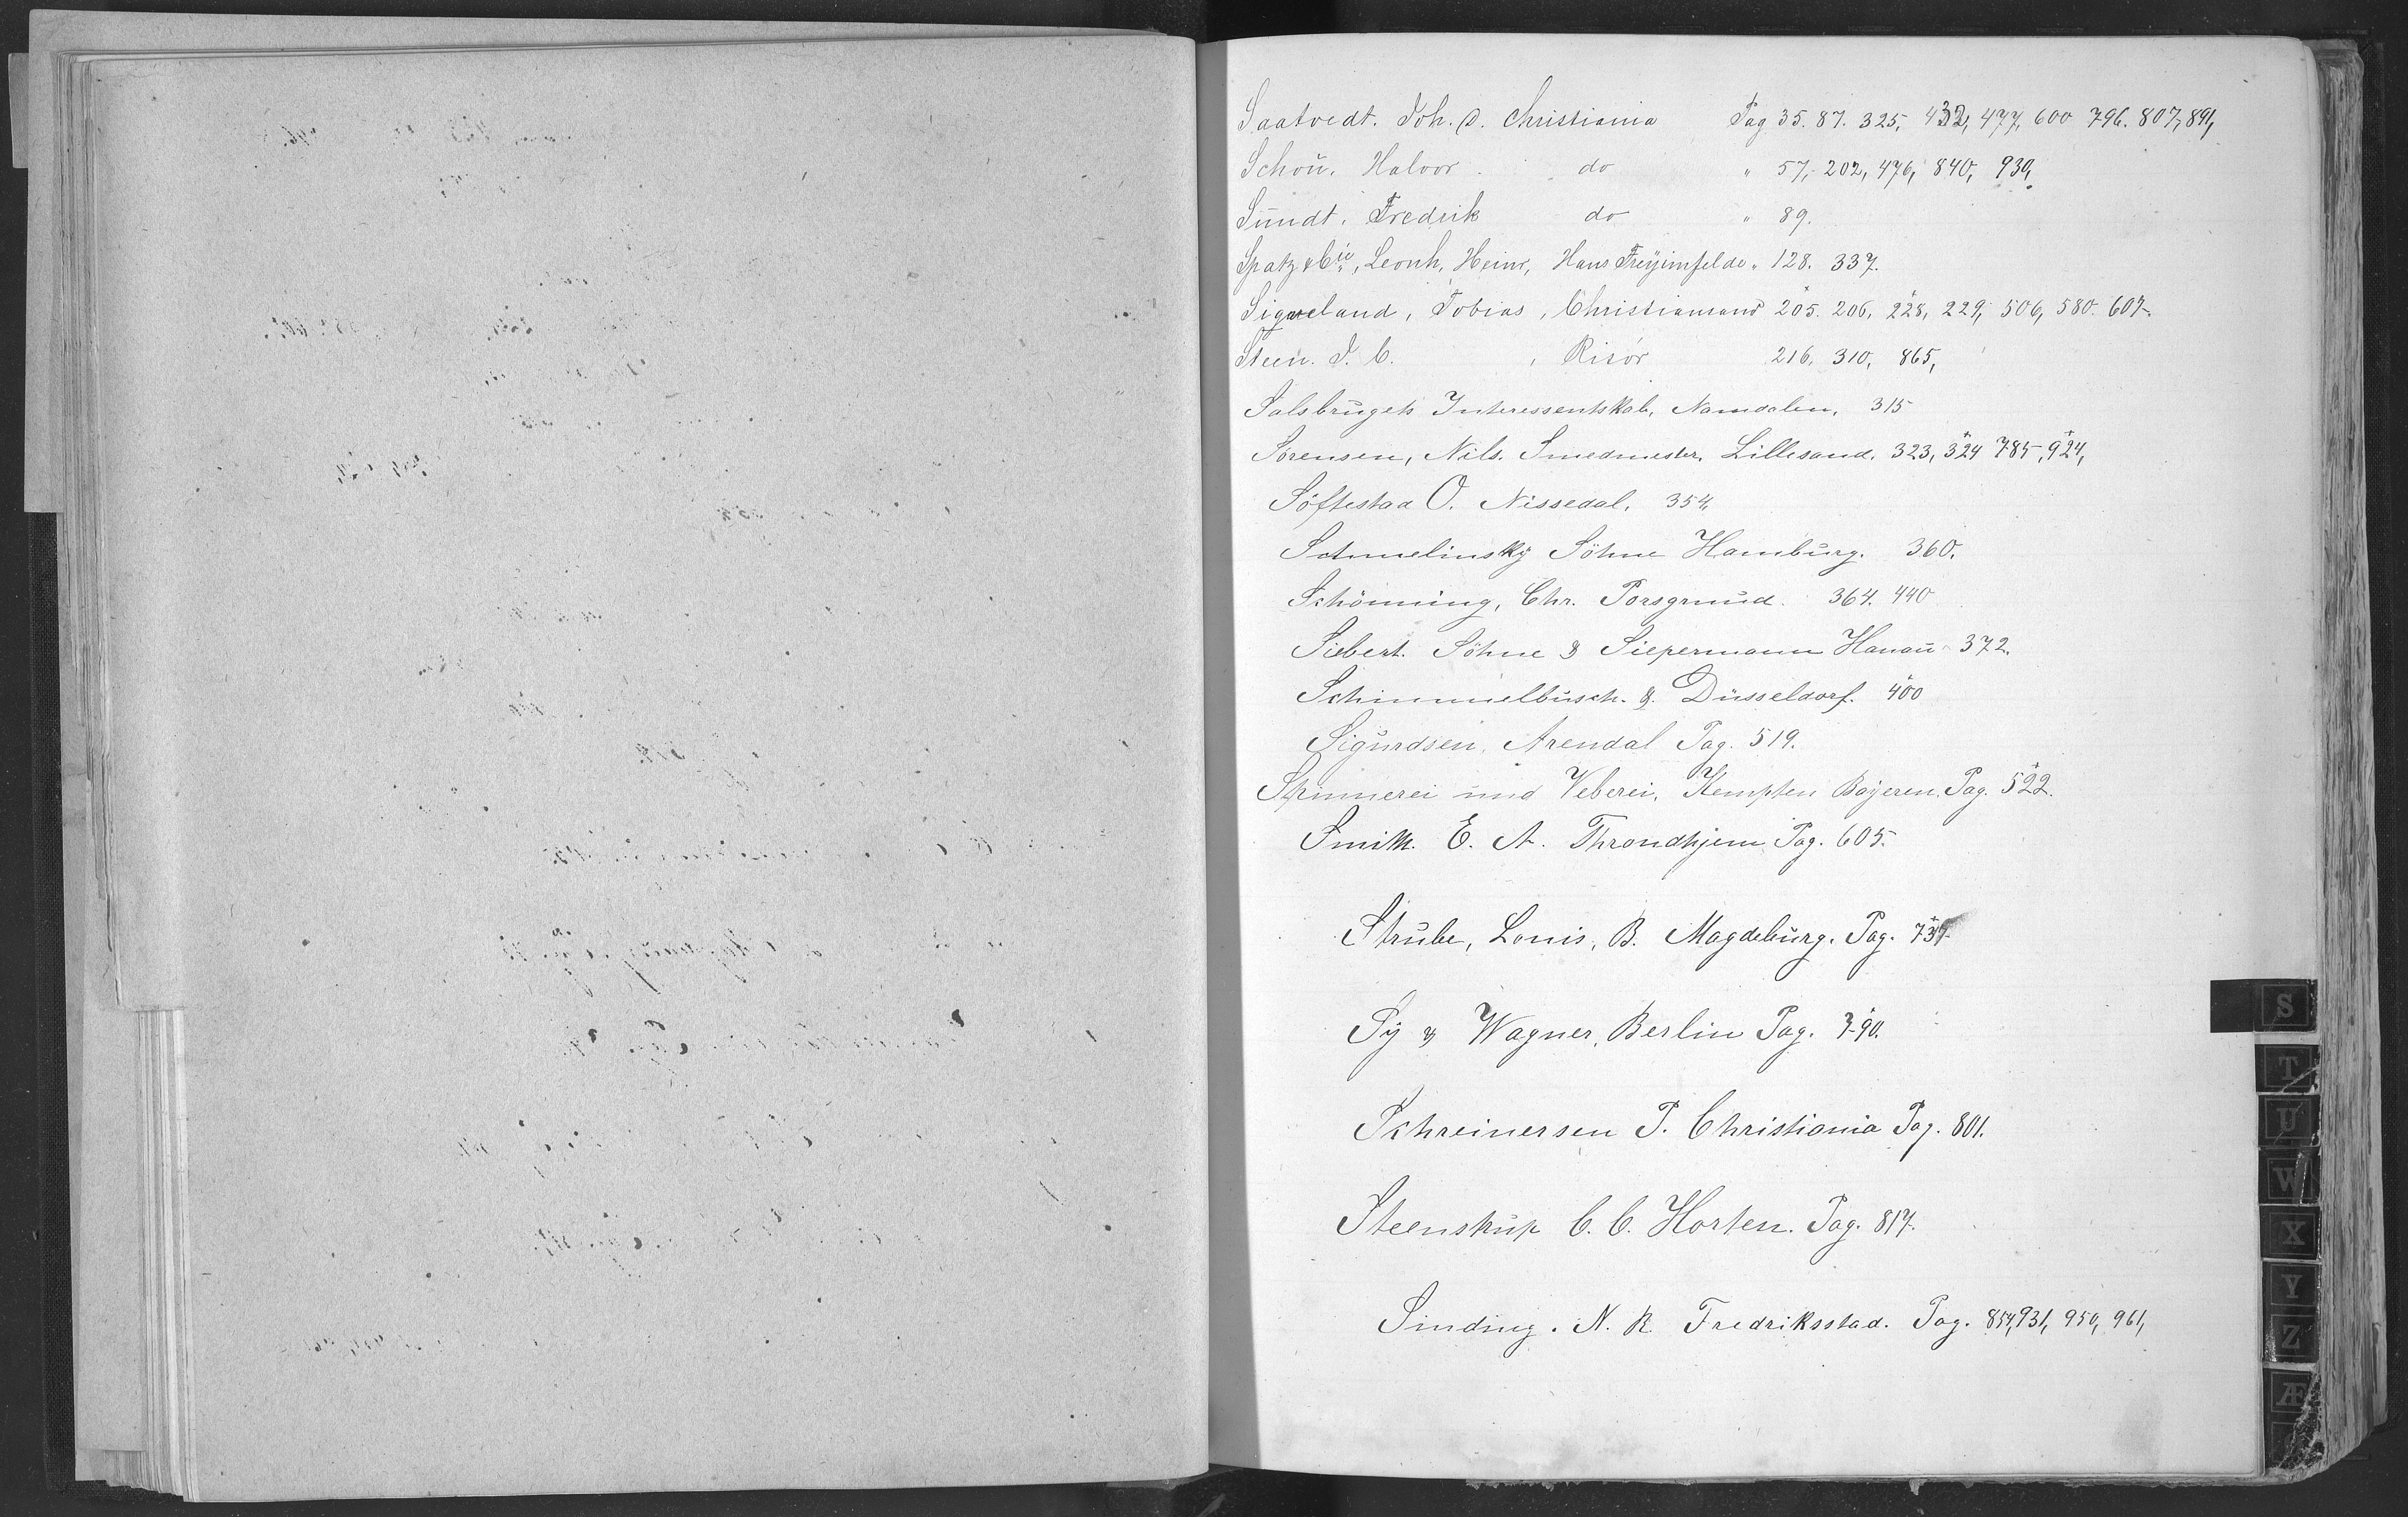 Saatvedt. Joh. O. Christiania Pag 35. 87. 325, 432, 477, 600 796. 807, 891,
Schou. Halvor. do " 57, 202, 476, 840, 930,
Sundt. Fredrik do " 89.
Spatz & Cie, Leonh, Heinr, Haus Freyimfelde " 128. 337.
Sigveland, Tobias, Christiansand 205. 206, 228, 229, 506, 580. 607.
Steen. J. C. , Risör 216, 310, 865,
Salsbrugets Interessentskab, Namdalen, 315
Sörensen, Nils. Smedmester, Lillesand, 323, 324 785, 924,
Söftestad O. Nissedal, 354,
Schmelinsky Söhne Hamburg. 360.
Schönning, Chr. Porsgrund. 364. 440
Siebert. Söhne & Siepermann Hanau 372.
Schimmelbusch. & Düsseldorf. 400
Sigurdsen, Arendal Pag. 519.
Spinnerei und Veberei, Kempten Bayeren. Pag. 522.
Smith. E. A. Throndhjem Pag. 605.
Strube, Louis, B. Magdeburg. Pag.
Sy & Wagner, Berlin Pag. 790.
Schreinersen P. Christiania Pag. 801.
Steenstrup C. C. Horten. Pag. 817.
Sinding. N. R. Fredriksstad. Pag. 854, 931, 950, 961,
S
T
U
W
X
Y
Z
Æ